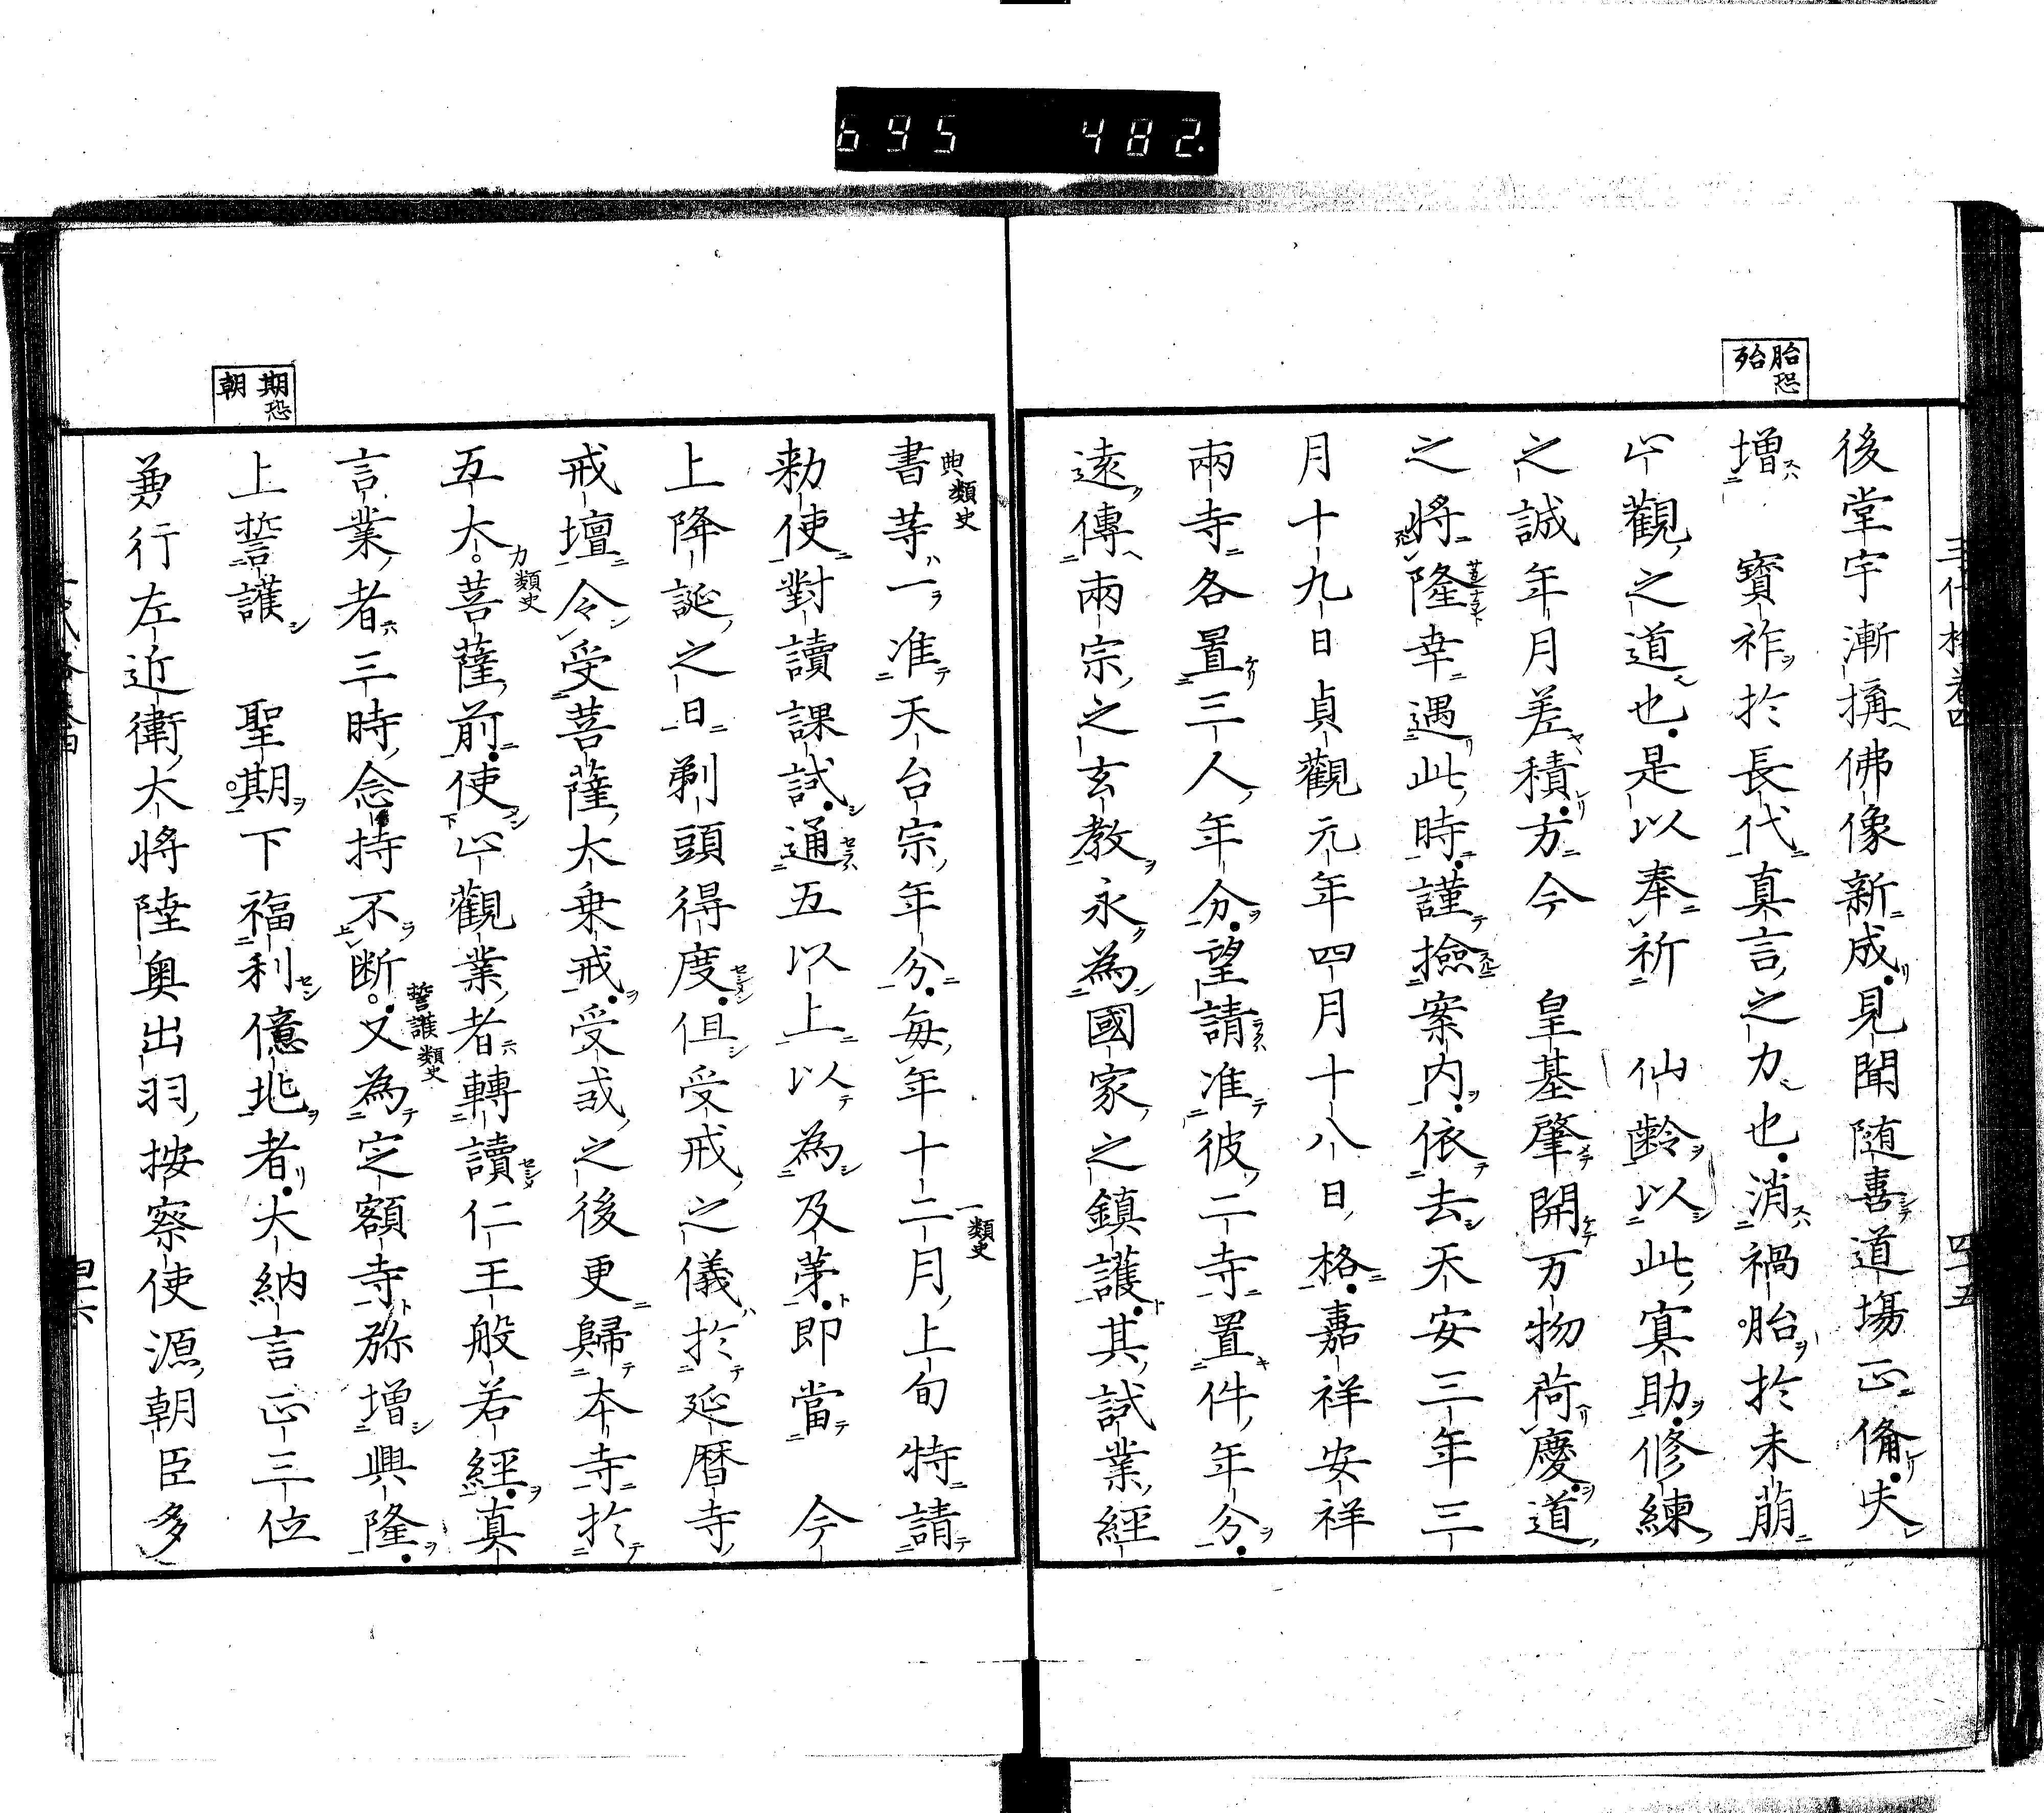 695 482.
胎恐
殆
後堂宇漸搆佛像新成見聞随喜道場正備夫
増 寳祚於長代真言之力也消禍胎於未萠
止觀之道也是以奉祈 仙齢以此冥助修練
之誠年月差積方今 皇基肇開万物荷慶道
之將隆幸遇此時謹撿案内依去天安三年三
月十九日貞觀元年四月十八日格嘉祥安祥
兩寺各置三人年分望請准彼二寺置件年分
遠傳兩宗之玄教永為國家之鎮護其試業經
書䓁一准天台宗年分毎年十二月上旬特請
典類史
一類史
勅使對讀課試通五以上以為及苐即當 今
上降誕之日剃頭得度但受戒之儀於延暦寺
戒壇令受菩薩大乗戒受戒之後更歸本寺於
五大菩薩前使止觀業者轉讀仁王般若經真
力類史
言業者三時念持不断又為定額寺弥増興隆
誓護類史
上誓護 聖期下福利億兆者大納言正三位
期恐
朝
兼行左近衛大将陸奥出羽按察使源朝臣多